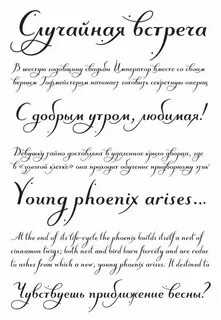 Случайная встреча
В шестую годовщину свадьбы Император вместе со своим
верным Гофмейстером начинает готовить секретную операц
С добрым утром, любимая!
Девушку тайно доставляют в удаленное крыло дворца, где
в «золотой клетке» она проходит обучение придворному этик
Young phoenix arises...
At the end of its life-cycle the phoenix builds itself a nest of
cinnamon twigs; both nest and bird burn fiercely and are reduc
to ashes from which a new, young phoenix arises. It destined to
Чувствуешь приближение весны?